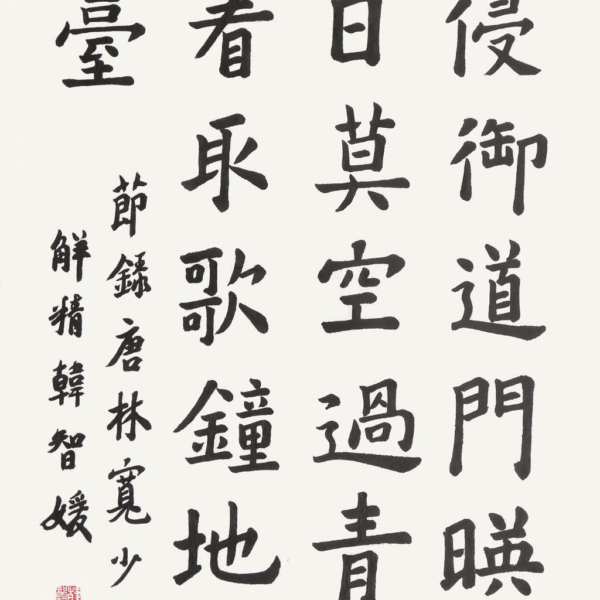 侵御道門暎
日莫空過青
看取歌鐘地
臺
節錄唐林寬少
解精韓智媛